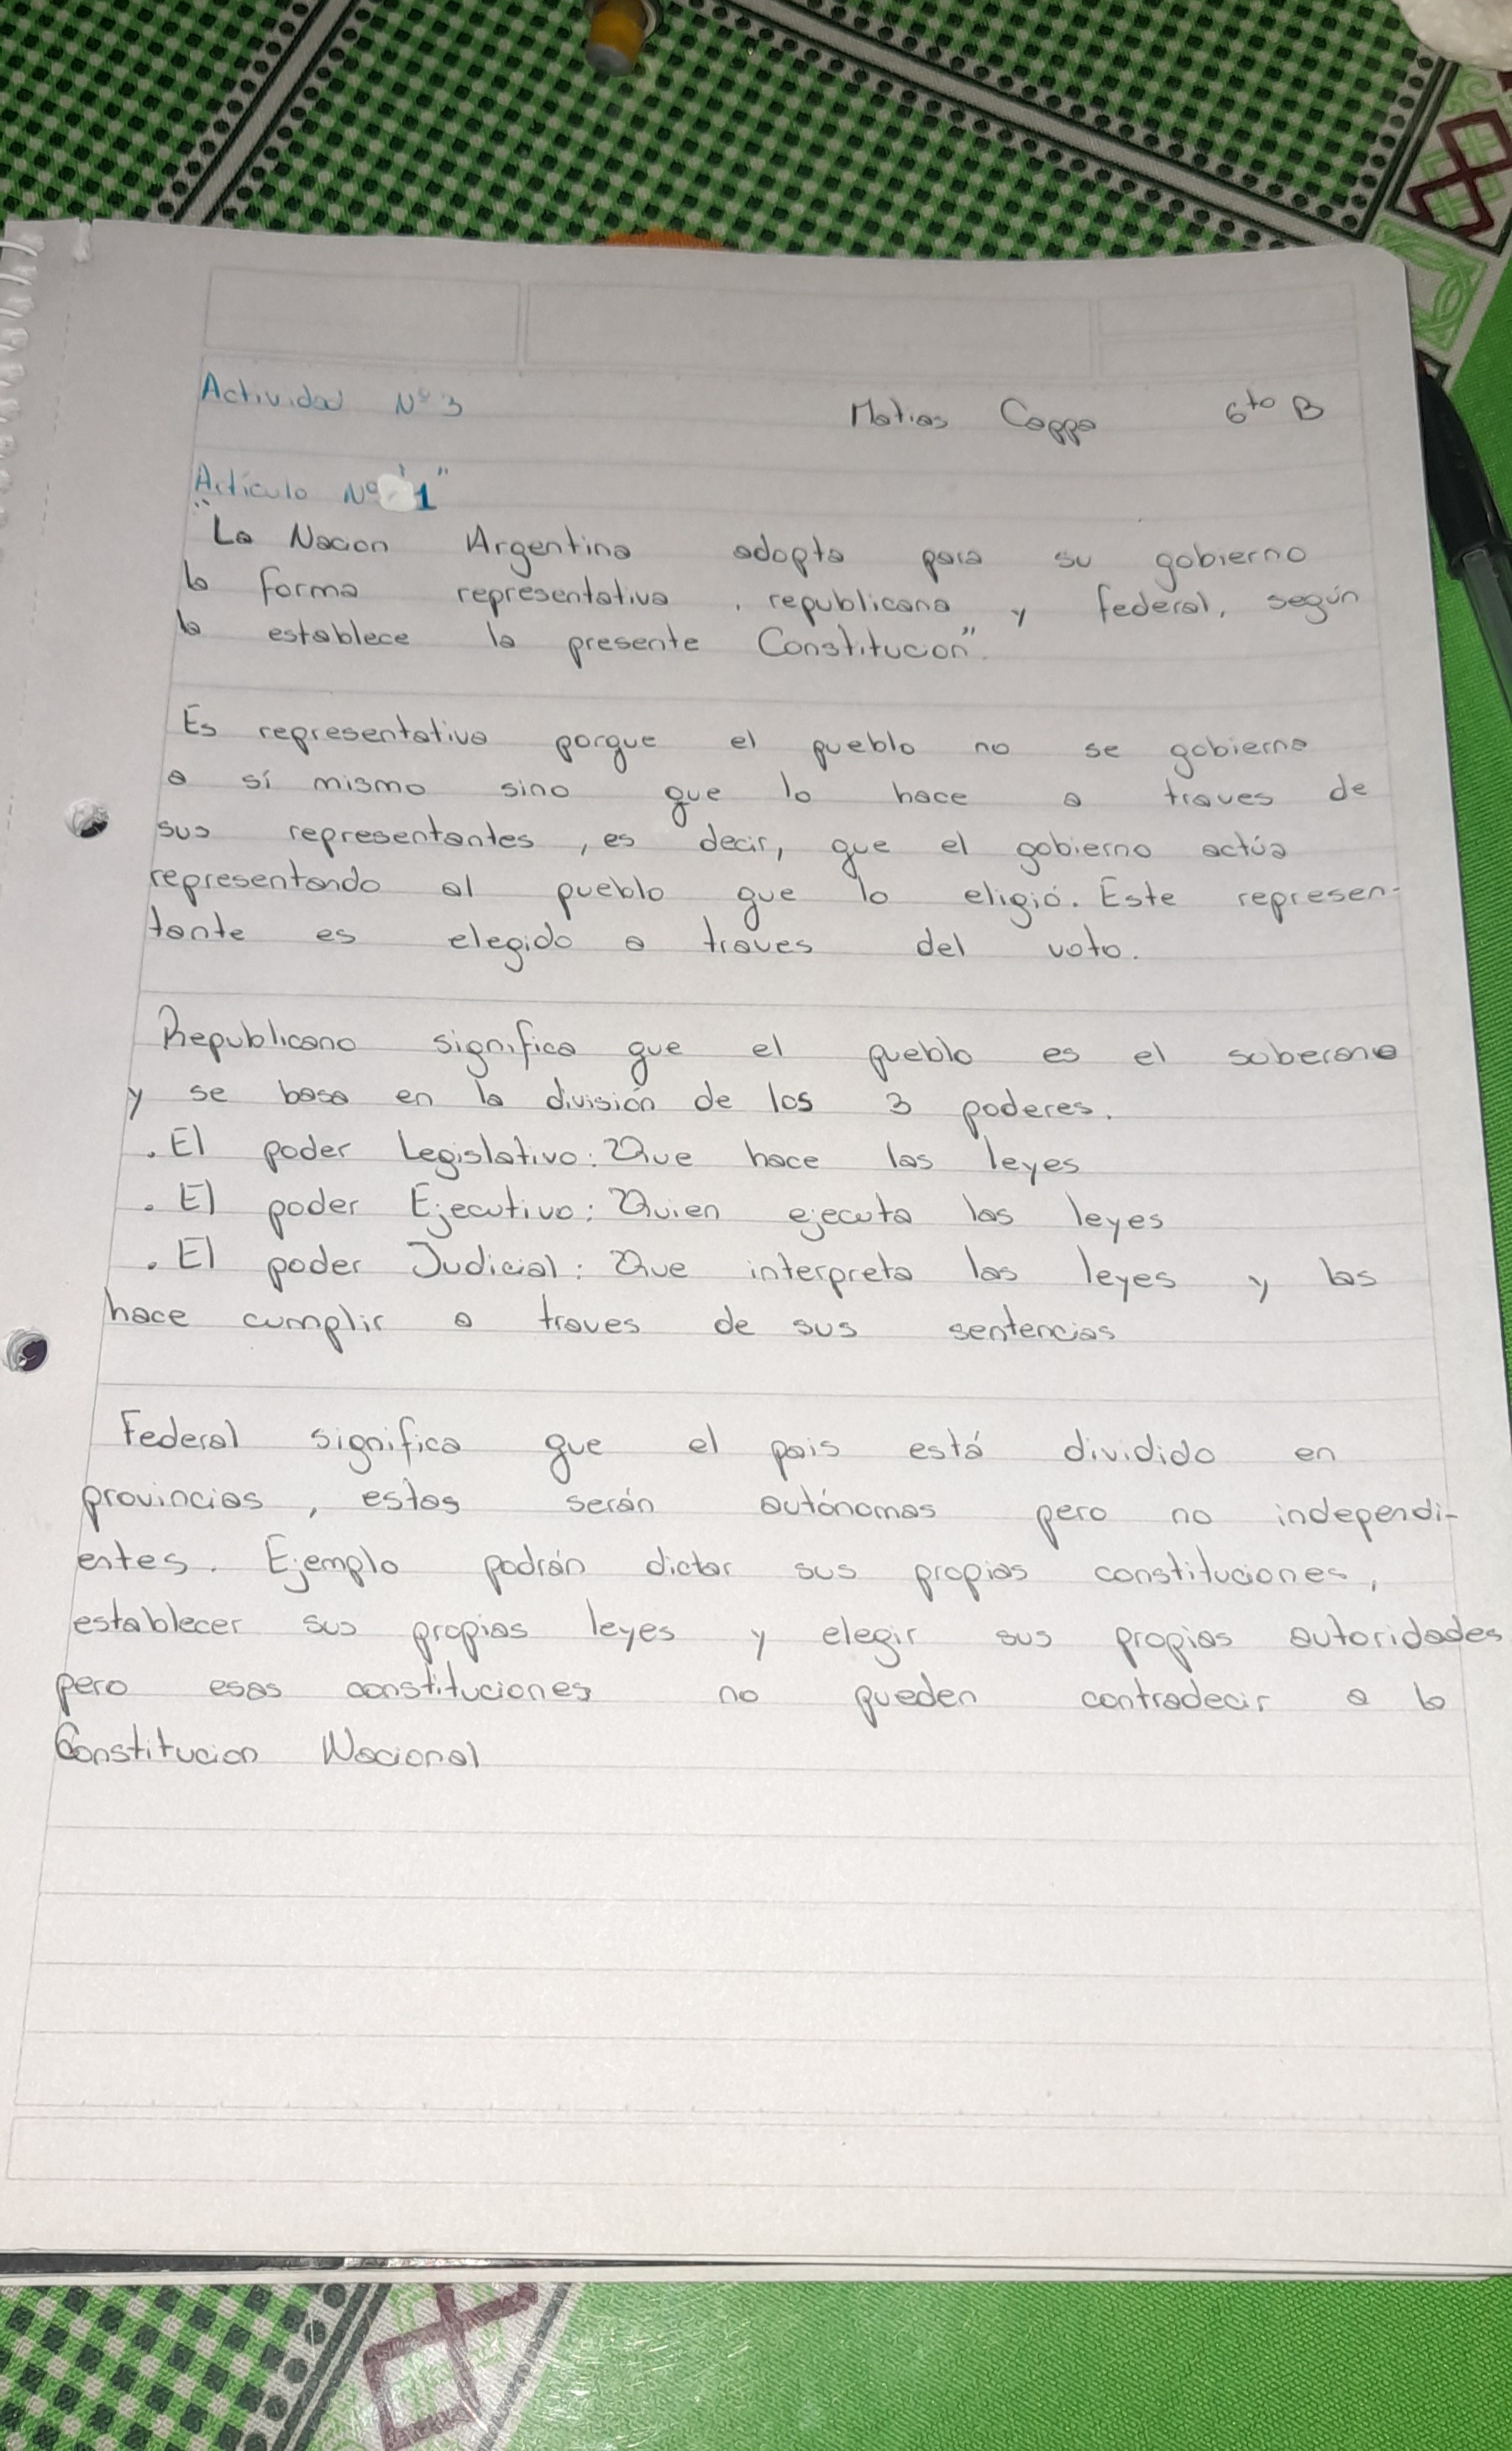 Actividad Nº 3 Matias Cappa 6to B
Artículo Nº "1"
"La Nacion Argentina adopta para su gobierno
la forma representativa, republicana y federal, según
la establece la presente Constitucion".
Es representativa porque el pueblo no se gobierna
a sí mismo sino que lo hace a traves de
sus representantes, es decir, que el gobierno actúa
representando al pueblo que lo eligió. Este represen-
tante es elegido a traves del voto.
Republicano significa que el pueblo es el soberano
y se basa en la división de los 3 poderes.
. El poder Legislativo: Que hace las leyes
. El poder Ejecutivo: Quien ejecuta las leyes
. El poder Judicial: Que interpreta las leyes y las
hace cumplir a traves de sus sentencias
Federal significa que el pais está dividido en
provincias, estas serán autónomas pero no independi-
entes. Ejemplo podrán dictar sus propias constituciones,
establecer sus propias leyes y elegir sus propias autoridades
pero esas constituciones no pueden contradecir a la
Constitucion Nacional